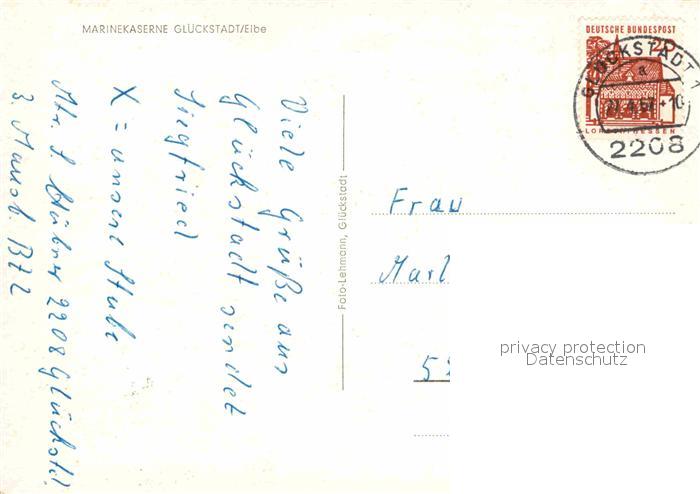 MARINEKASERNE GLÜCKSTADT/Elbe
Viele Grüße aus
Glückstadt sendet
Siegfried
X = unsere Stube
Mtr. S. Hübner 2208 Glückstdt.
3. Mausb. BZ 2
Foto-Lehmann, Glückstadt
DEUTSCHE BUNDESPOST
20
GLÜCKSTADT 1
a
2208
LORSCH/HESSEN
Frau
Marl
privacy protection
Datenschutz